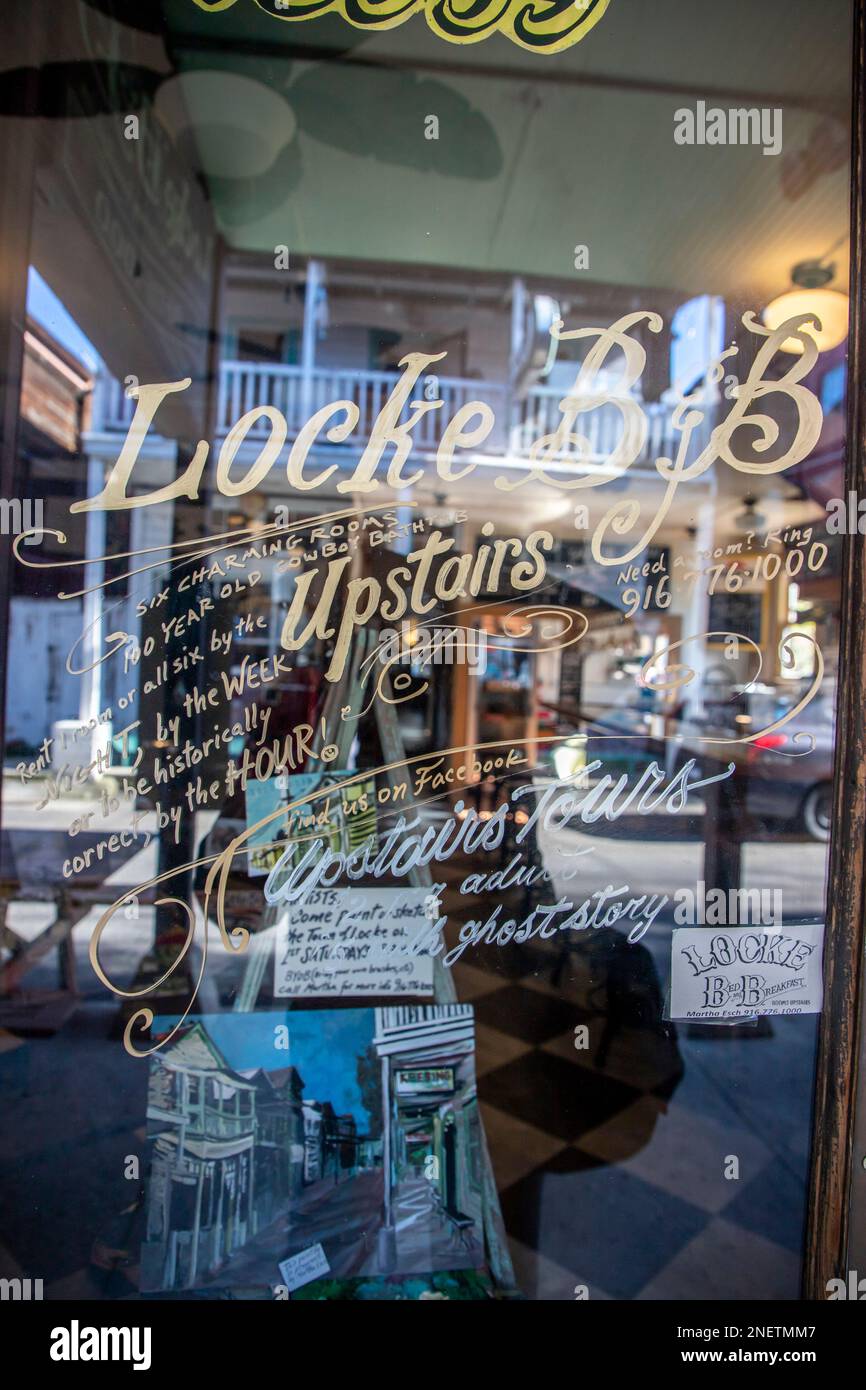 Locke B&B
SIX CHARMING ROOMS
100 YEAR OLD COWBOY BATHTUB
Upstairs
Need a room? Ring
916 776-1000
Rent 1 room or all six by the
NIGHT, by the WEEK
or to be historically
correct, by the HOUR!
find us on Facebook
Upstairs Tours
adult
ghost story
Come paint or sketch
the Town of Locke on
1ST SATURDAYS
BYOB (bring your own brushes, etc)
call Martha for more info
LOCKE
BED AND BREAKFAST
ROOMS UPSTAIRS
Martha Esch 916.776.1000
alamy
Image ID: 2NETMM7
www.alamy.com